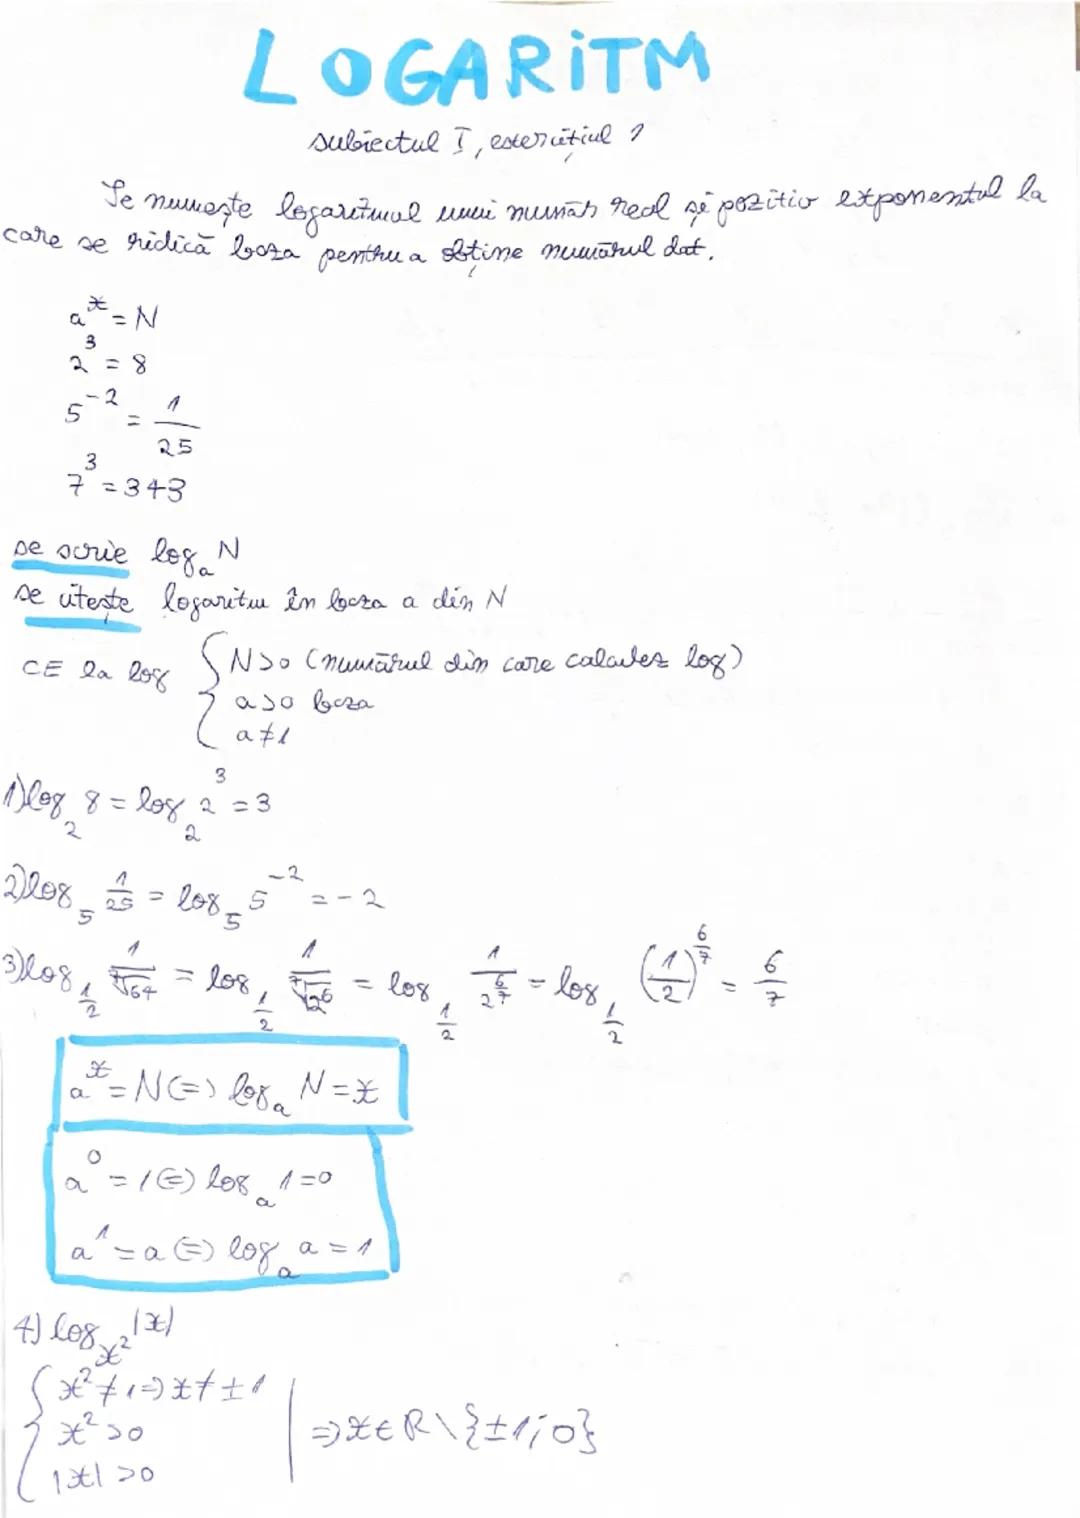 LOGARiTM
subiectul I, exercițiul 1
Se numește logaritmul unui număr real și pozitiv exponentul la
care se ridică baza pentru a obține numărul dat.
a^x = N
2^3 = 8
5^-2 = 1/25
7^3 = 343
se scrie log_a N
se citește logaritm în baza a din N
CE la log { N>0 (numărul din care calculez log)
a>0 baza
a≠1
1) log_2 8 = log_2 2^3 = 3
2) log_5 1/25 = log_5 5^-2 = -2
3) log_1/2 1/⁷√64 = log_1/2 1/⁷√2^6 = log_1/2 1/2^(6/7) = log_1/2 (1/2)^(6/7) = 6/7
a^x = N (=) log_a N = x
a^0 = 1 (=) log_a 1 = 0
a^1 = a (=) log_a a = 1
4) log_x² |x|
{ x² ≠ 1 => x ≠ ±1
x² >0 | => x ∈ R \ {±1; 0}
|x| >0